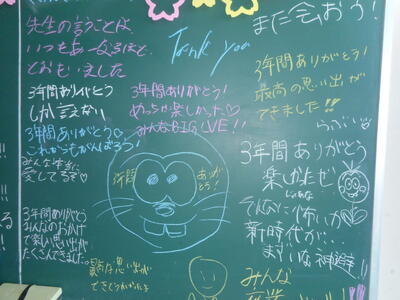 先生の言うことは、
いつもあ
とおもいました
Tank you
また会おう!
3年間ありがとう
しか言えない
3年間ありがとう!
めっちゃ楽しかった♡
みんなBIG LOVE!!
3年間ありがとう!
最高の思い出が
できました!!
3年間ありがとう
これからもがんばろう!
みんな本気に
愛してるぞ
3年間
ありがとう!
3年間ありがとう
楽しかたぜ
じゃあな
そんなに怖いか
新時代が…
まずいな
3年間ありがとう
みんなのおかげ
で楽しい思い出が
たくさんできました
最高な思い出が
みんな